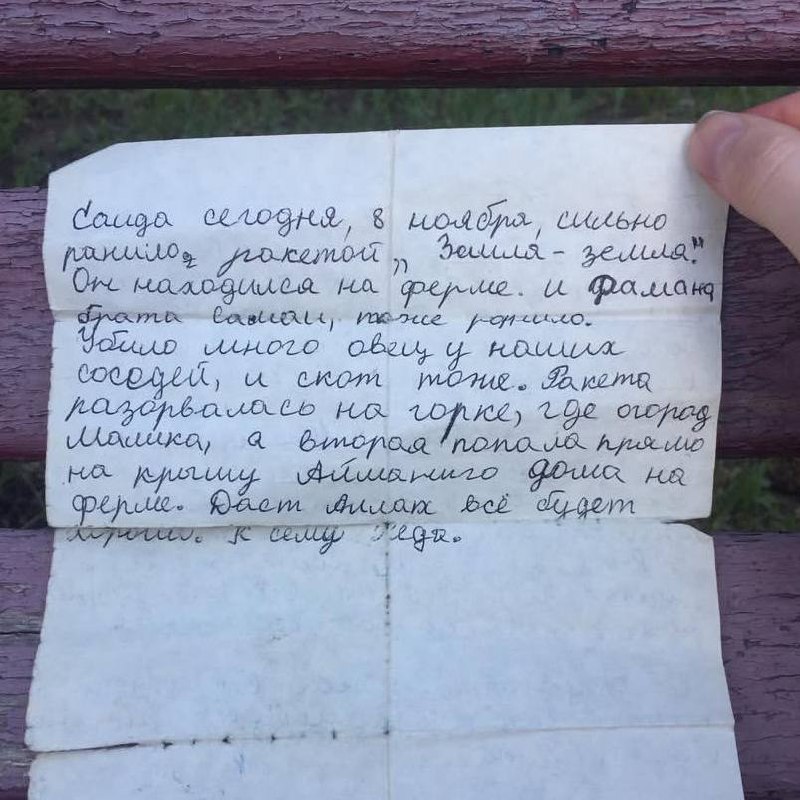 Саида сегодня, 8 ноября, сильно
ранило ракетой „Земля - земля."
Он находился на ферме. и Рамана
брата Саман, тоже ранило.
Убило много овец у наших
соседей, и скот тоже. Ракета
разорвалась на горке, где огород
Малика, а вторая попала прямо
на крышу Айманиго дома на
ферме. Даст Аллах всё будет
хорошо. К сему Хеди.